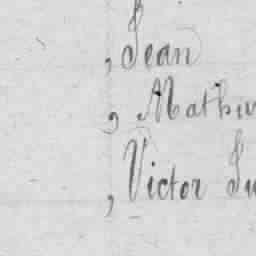 , Jean
, Mathieu
, Victor